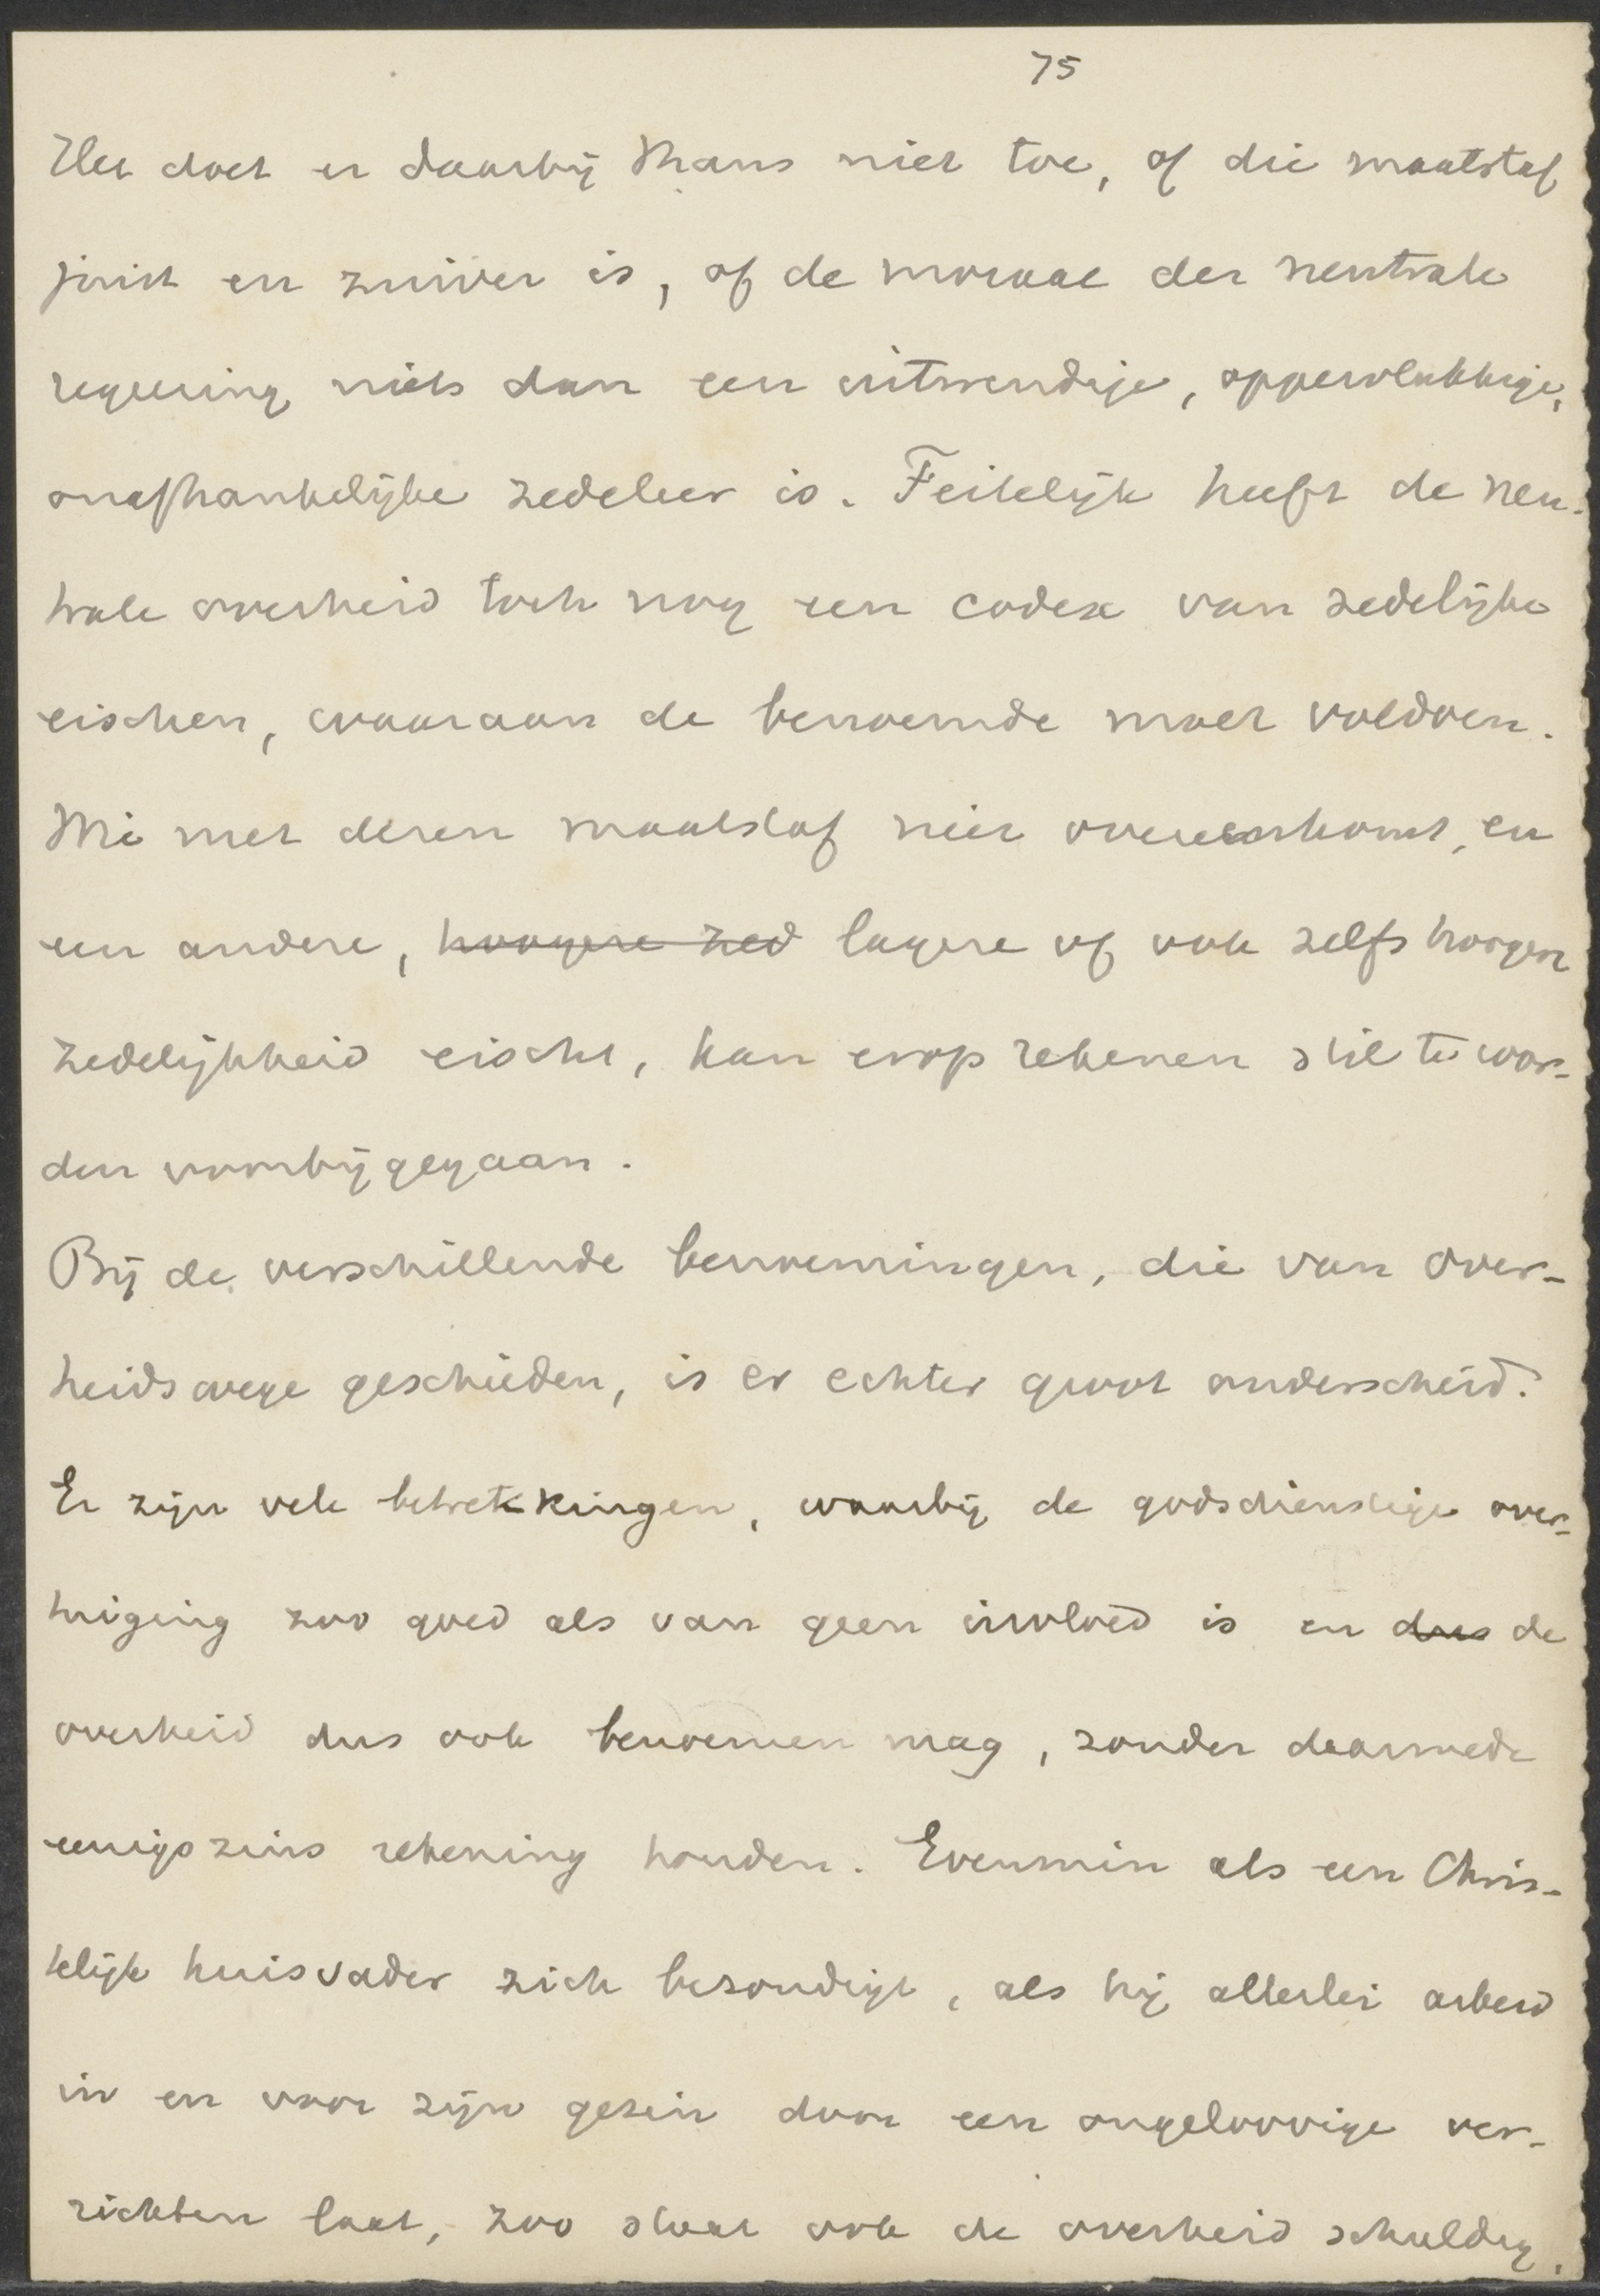 75
Het doet er daarbij thans niet toe, of die maatstaf
juist en zuiver is, of de moraal der neutrale
regeering niets dan een uitwendige, oppervlakkige,
onafhankelijke zedeleer is. Feitelijk heeft de neu-
trale overheid toch nog een codex van zedelijke
eischen, waaraan de benoemde moet voldoen.
Wie met dezen maatstaf niet overeenkomt, en
een andere, hoogere zed lagere of ook zelfs hoogere
zedelijkheid eischt, kan erop rekenen stil te wor-
den voorbijgegaan.
Bij de verschillende benoemingen, die van over-
heidswege geschieden, is er echter groot onderscheid.
Er zijn vele betrekkingen, waarbij de godsdienstige over-
tuiging zoo goed als van geen invloed is en dus de
overheid dus ook benoemen mag, zonder daarmede
eenigszins rekening houden. Evenmin als een Chris-
telijk huisvader zich bezondigt, als hij allerlei arbeid
in en voor zijn gezin door een ongeloovige ver-
richten laat, zoo staat ook de overheid schuldig,